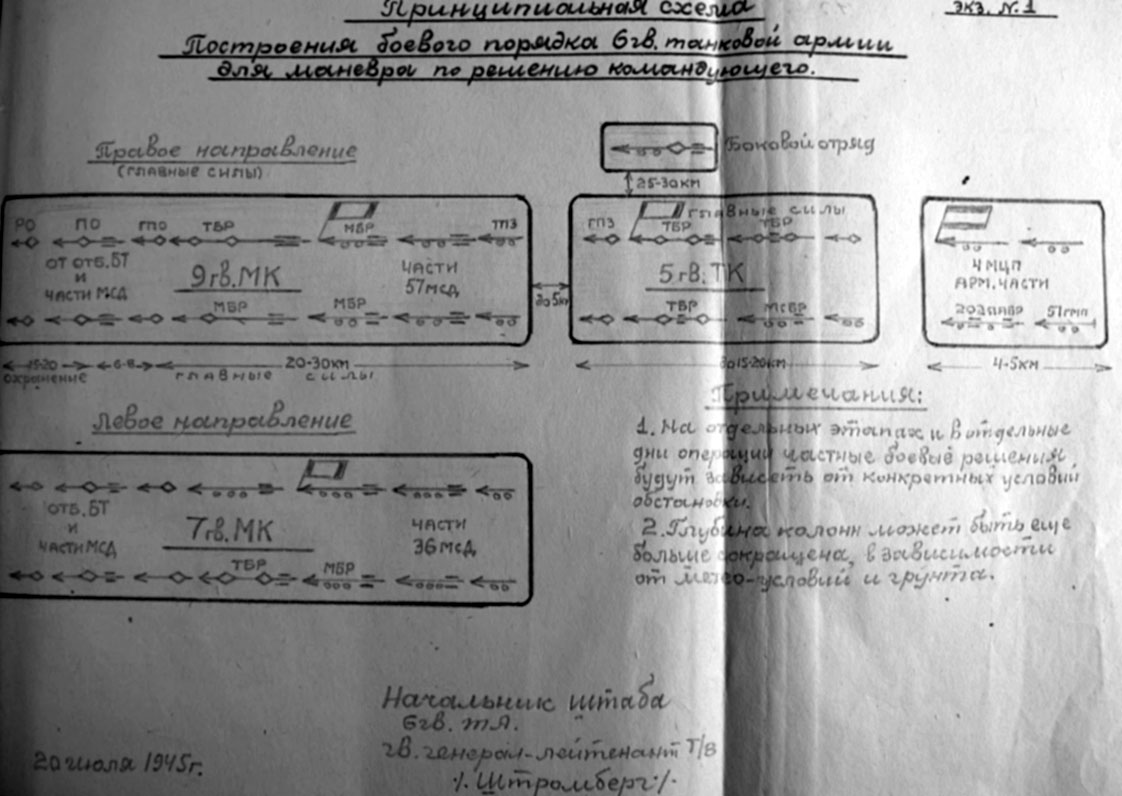 Принципиальная схема
экз. №1
Построения боевого порядка 6 гв. танковой армии
для маневра по решению командующего.
Правое направление
(главные силы)
Боковой отряд
25-30 км
РО ПО ГПО ТБР МБР ТПЗ
ОТ ОТБ. БТ
И
ЧАСТИ МСД
9 гв. МК
ЧАСТИ
57 мсд
МБР МБР
до 5 км
ГПЗ ТБР ГЛАВНЫЕ СИЛЫ ТБР
5 гв. ТК
ТБР МсБР
4 МЦП
АРМ. ЧАСТИ
202 ЛАБР 51 гмп
15-20 6-8 20-30 км
охранение главные силы
до 15-20 км
4-5 км
Левое направление
ОТБ. БТ
и
ЧАСТИ МСД
7 гв. МК
ЧАСТИ
36 мсд
ТБР МБР
Примечания:
1. На отдельных этапах и в отдельные
дни операции частные боевые решения
будут зависеть от конкретных условий
обстановки.
2. Глубина колонн может быть еще
больше сокращена, в зависимости
от метео-условий и грунта.
Начальник штаба
6 гв. ТА.
гв. генерал-лейтенант Т/В
·/. Штромберг ·/·
20 июля 1945 г.